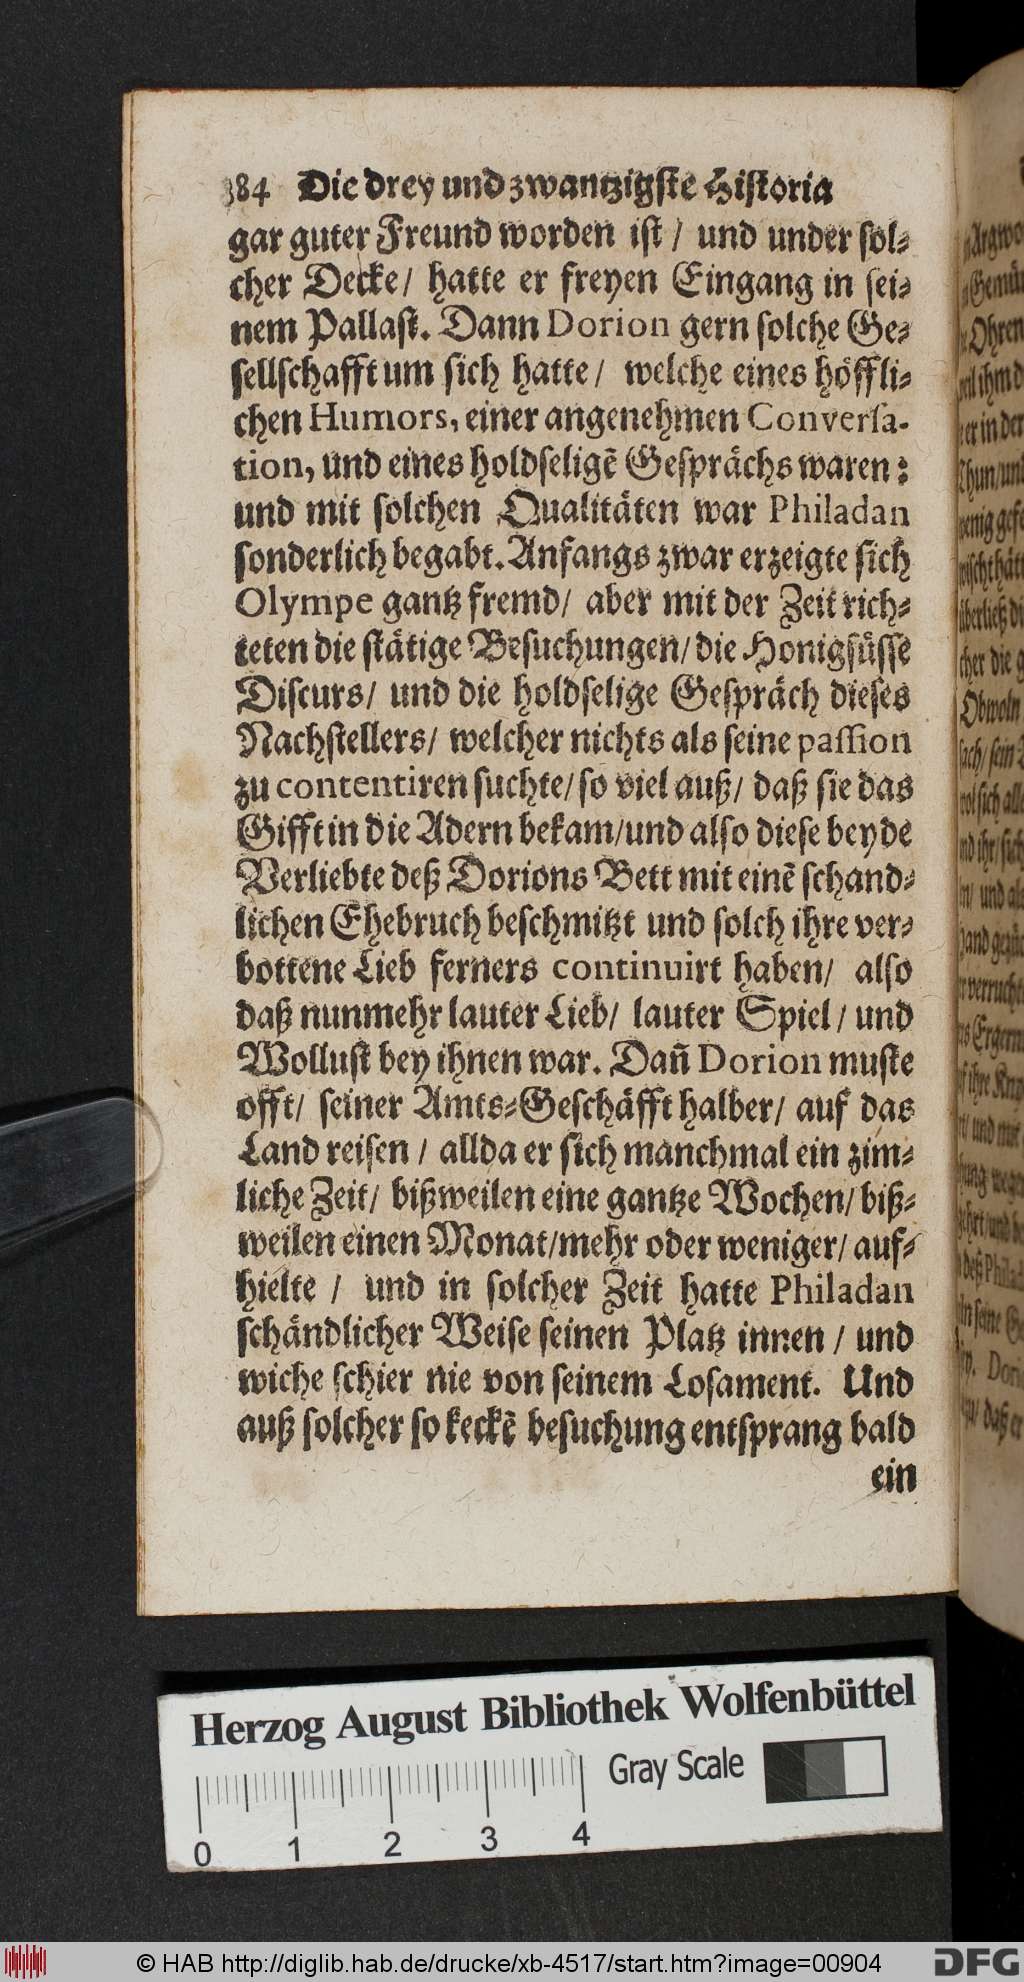 384 Die drey und zwantzigste Historia
gar guter Freund worden ist / und under sol⸗
cher Decke / hatte er freyen Eingang in sei⸗
nem Pallast. Dann Dorion gern solche Ge⸗
sellschafft um sich hatte / welche eines höffli⸗
chen Humors, einer angenehmen Conversa-
tion, und eines holdseligẽ Gesprächs waren:
und mit solchen Qualitäten war Philadan
sonderlich begabt. Anfangs zwar erzeigte sich
Olympe gantz fremd / aber mit der Zeit rich⸗
teten die stätige Besuchungen / die Honigsüsse
Discurs / und die holdselige Gespräch dieses
Nachstellers / welcher nichts als seine passion
zu contentiren suchte / so viel auß / daß sie das
Gifft in die Adern bekam / und also diese beyde
Verliebte deß Dorions Bett mit einẽ schand⸗
lichen Ehebruch beschmitzt und solch ihre ver⸗
bottene Lieb ferners continuirt haben / also
daß nunmehr lauter Lieb / lauter Spiel / und
Wollust bey ihnen war. Dañ Dorion muste
offt / seiner Amts⸗Geschäfft halber / auf das
Land reisen / allda er sich manchmal ein zim⸗
liche Zeit / bißweilen eine gantze Wochen / biß⸗
weilen einen Monat / mehr oder weniger / auf⸗
hielte / und in solcher Zeit hatte Philadan
schändlicher Weise seinen Platz innen / und
wiche schier nie von seinem Losament. Und
auß solcher so keckẽ besuchung entsprang bald
ein
Herzog August Bibliothek Wolfenbüttel
Gray Scale
0 1 2 3 4
© HAB http://diglib.hab.de/drucke/xb-4517/start.htm?image=00904
DFG